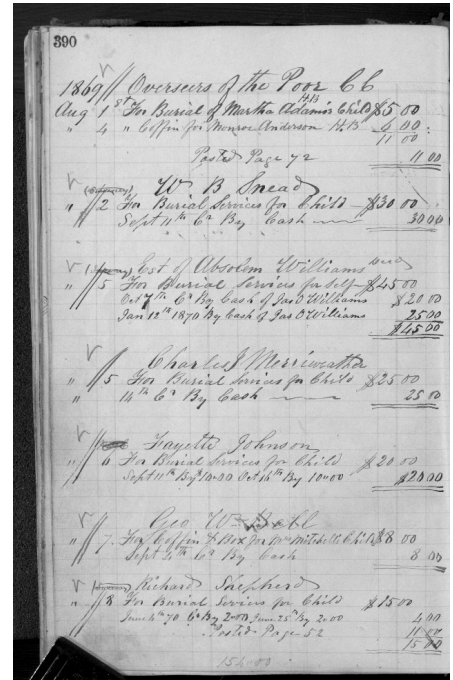 390
1869 // Overseers of the Poor C C
Aug 1st For Burial of Martha Adams Child H.B $5 00
" 4 " Coffin for Monroe Anderson H.B 6 00
11 00
Posted Page 72 11 00
W B Snead
" 2 For Burial Services for Child $30 00
Sept 11th Cr By Cash 30 00
Est of Absolem Williams decd
" 5 For Burial Services for self $45 00
Oct 7th Cr By Cash of Jas O Williams $20 00
Jan 12th 1870 By Cash of Jas O Williams 25 00
$45 00
Charles J Merriweather
" 5 For Burial Services for Child $25 00
14th Cr By Cash 25 00
Fayette Johnson
" 6 For Burial Services for Child $20 00
Sept 11th By 10-00 Oct 16th By 10-00 $20 00
Geo W
" 7. For Coffin & Box for Mrs Mitchells Child $8 00
Sept 4th Cr By Cash 8 00
Richard Shepherd
" 8 For Burial Services for Child $15 00
June 4th 70 Cr By 2-00 June 25th By 2-00 4 00
Posted Page 52 11 00
15 00
154-00